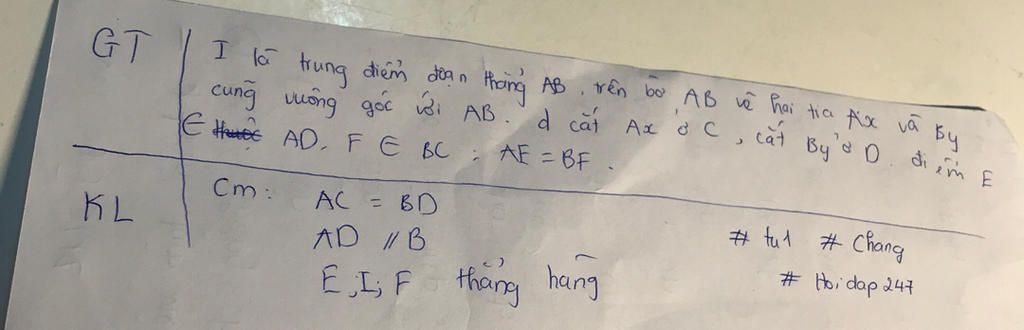 GT
I là trung điểm đoạn thẳng AB. trên bờ AB vẽ hai tia Ax và By
cung vuông góc với AB. d cắt Ax ở C, cắt By ở D. điểm E
∈ thuộc AD, F ∈ BC ; AE = BF.
KL
Cm: AC = BD
AD // B
E, I, F thẳng hàng
# tu1 # Chang
# Hoidap247